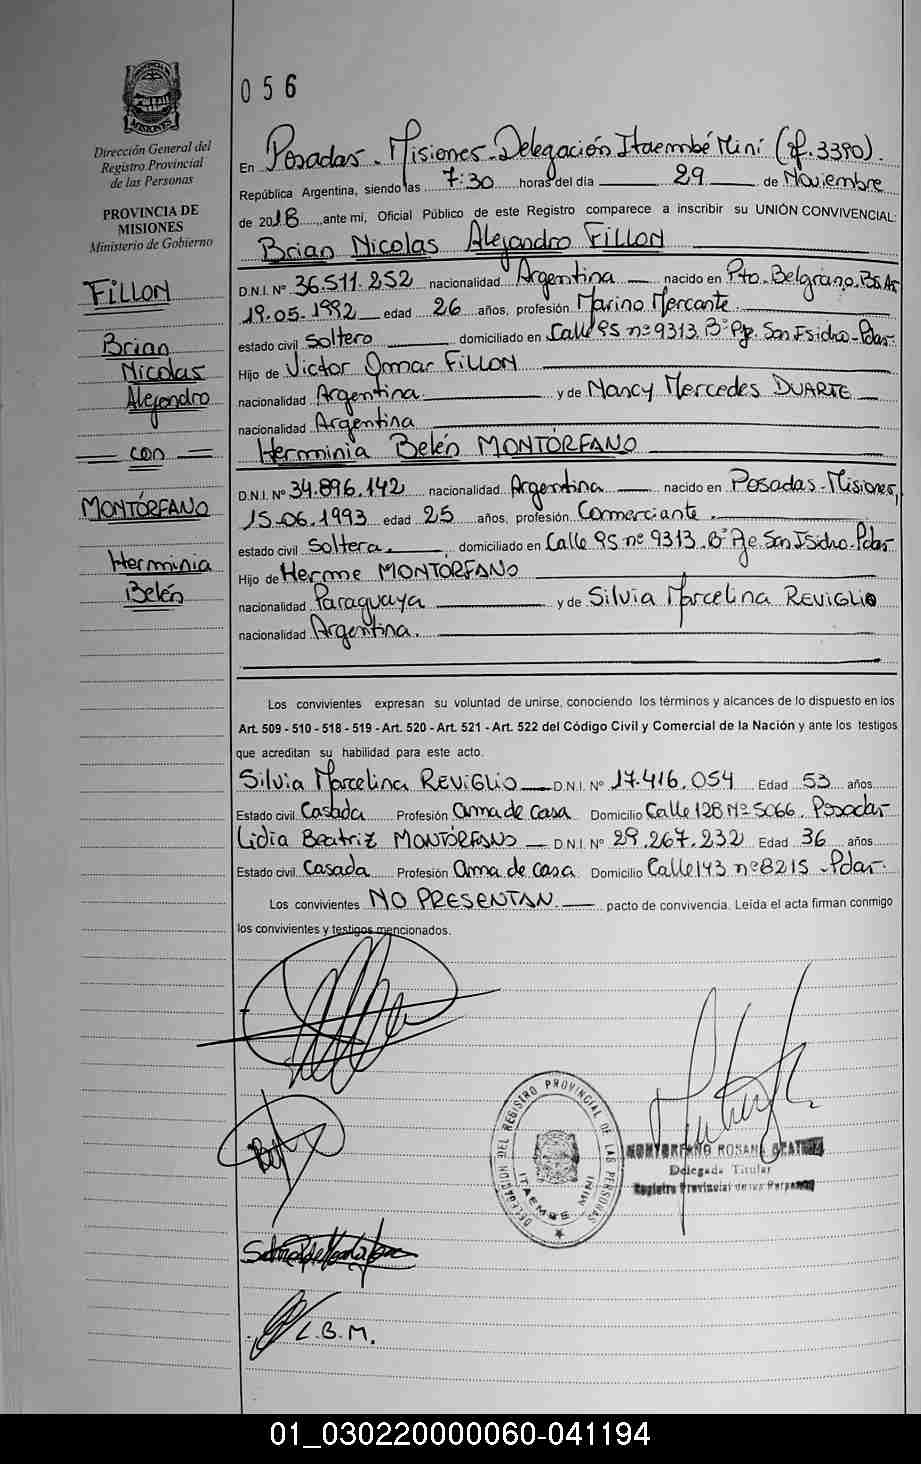 056
Dirección General del
Registro Provincial
de las Personas
PROVINCIA DE
MISIONES
Ministerio de Gobierno
FILLON
Brian
Nicolas
Alejandro
con
MONTÓRFANO
Herminia
Belén
En Posadas - Misiones - Delegación Itaembé Miní (of. 3390).
República Argentina, siendo las 7:30 horas del día 29 de Noviembre
de 2018 ante mi, Oficial Público de este Registro comparece a inscribir su UNIÓN CONVIVENCIAL:
Brian Nicolas Alejandro FILLON
D.N.I. Nº 36.511.252 nacionalidad Argentina nacido en Pto. Belgrano. Bs As
19.05.1992 edad 26 años, profesión Marino Mercante
estado civil Soltero domiciliado en Calle 95 nº 9313. Bº Pje. San Isidro - Pdas.
Hijo de Victor Omar FILLON
nacionalidad Argentina. y de Nancy Mercedes DUARTE
nacionalidad Argentina
Herminia Belén MONTÓRFANO
D.N.I. Nº 34.896.142 nacionalidad Argentina nacido en Posadas - Misiones,
15.06.1993 edad 25 años, profesión Comerciante.
estado civil Soltera. domiciliado en Calle 95 nº 9313. Bº Pje San Isidro - Pdas.
Hijo de Herme MONTORFANO
nacionalidad Paraguaya y de Silvia Marcelina REVIGLIO
nacionalidad Argentina.
Los convivientes expresan su voluntad de unirse, conociendo los términos y alcances de lo dispuesto en los
Art. 509 - 510 - 518 - 519 - Art. 520 - Art. 521 - Art. 522 del Código Civil y Comercial de la Nación y ante los testigos
que acreditan su habilidad para este acto.
Silvia Marcelina REVIGLIO D.N.I. Nº 17.416.054 Edad 53 años
Estado civil Casada Profesión Ama de casa Domicilio Calle 128 Nº 5066. Posadas
Lidia Beatriz MONTÓRFANO D.N.I. Nº 29.267.232 Edad 36 años
Estado civil Casada Profesión Ama de casa Domicilio Calle 143 nº 8215 - Pdas.
Los convivientes NO PRESENTAN. pacto de convivencia. Leída el acta firman conmigo
los convivientes y testigos mencionados.
DELEGACION DEL REGISTRO PROVINCIAL DE LAS PERSONAS
ITAEMBE MINI
MONTORFANO ROSANA
Delegada Titular
Registro Provincial de las Personas
L.B.M.
01_030220000060-041194